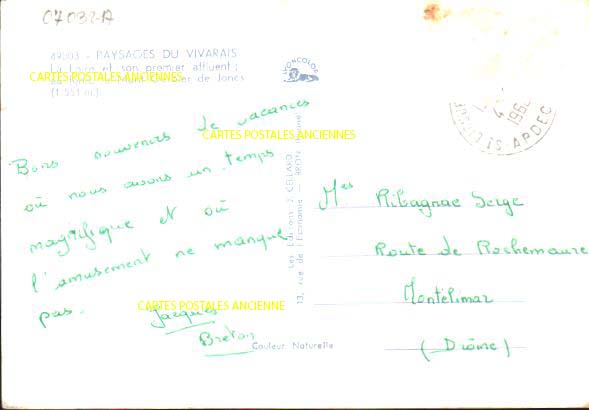 07032-A
49003 - PAYSAGES DU VIVARAIS
La Loire et son premier affluent ;
de Joncs
(1.551 m.)
CARTES POSTALES ANCIENNES
Bons souvenirs de vacances
où nous avons un temps
magnifique et où
l'amusement ne manque
pas.
Jacques
Breton
CARTES POSTALES ANCIENNES
CARTES POSTALES ANCIENNE
Couleur Naturelle
Les Editions J. CELLARD
13, rue de l'Economie — BRON (Rhône)
LYONCOLOR
196
ARDEC
Mes Ribagnac Serge
Route de Rochemaure
Montélimar
(Drôme)